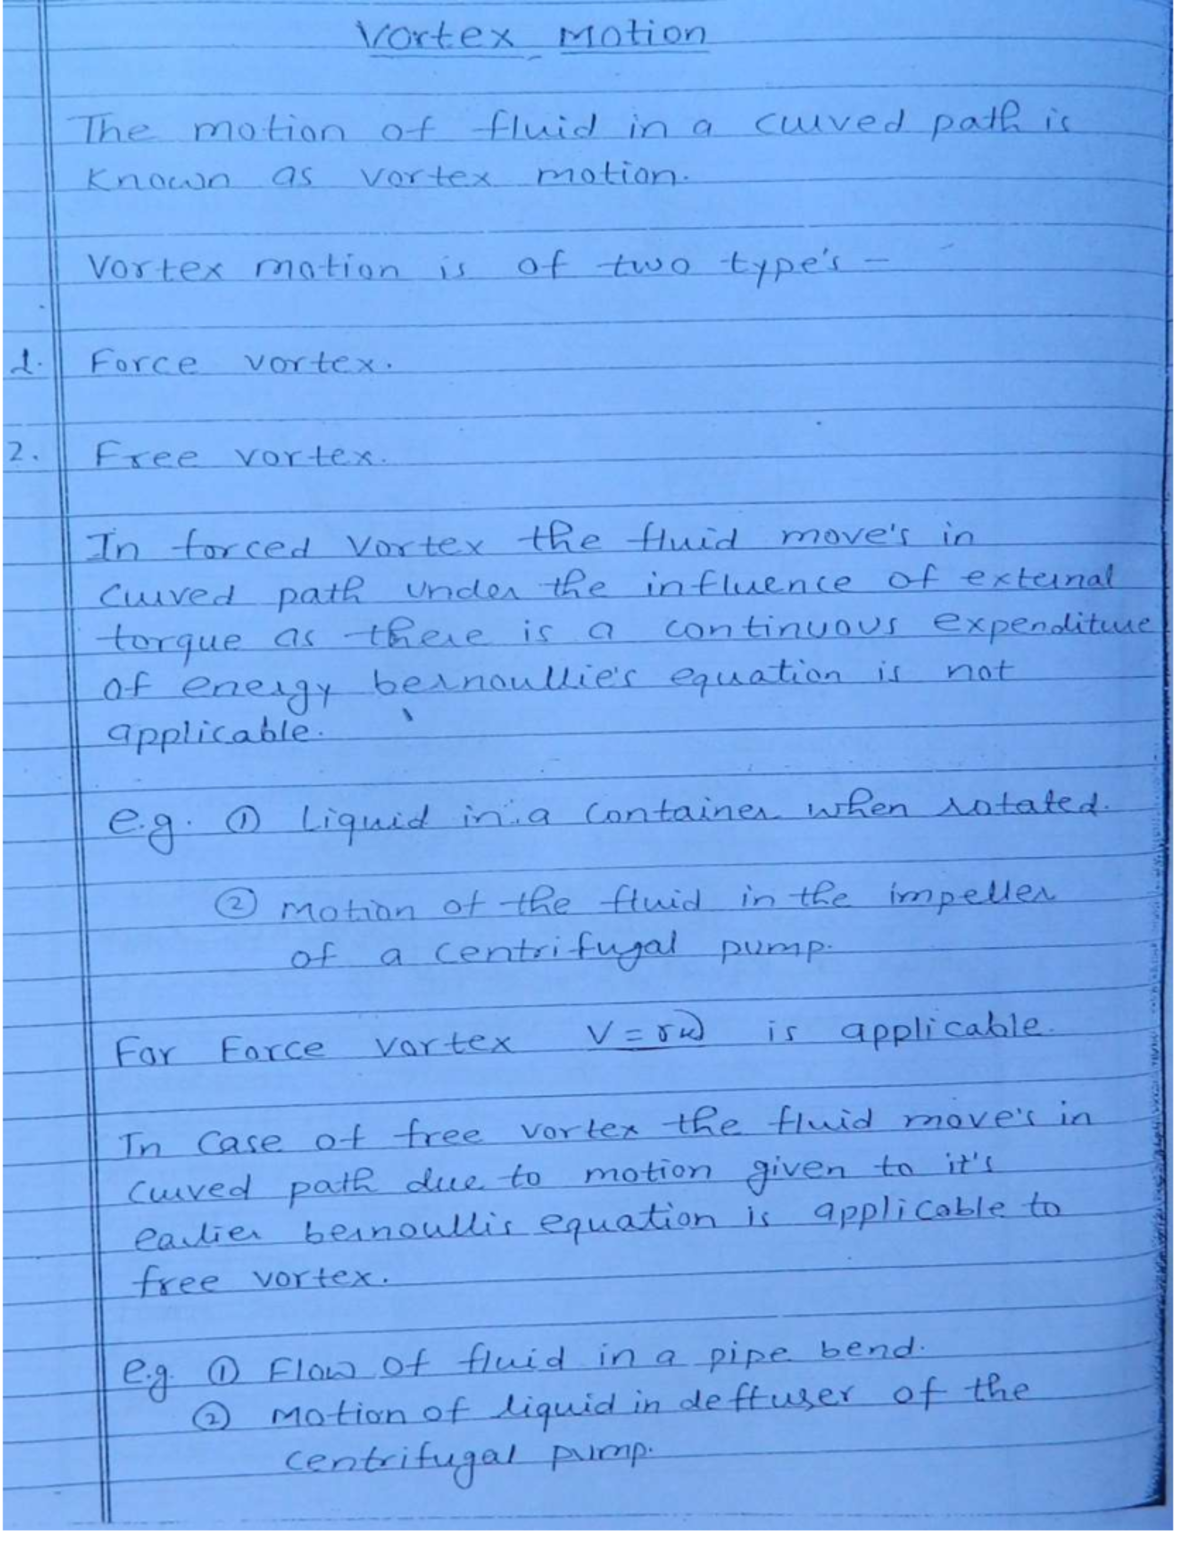 Vortex Motion
The motion of fluid in a curved path is
known as vortex motion.
Vortex motion is of two type's -
1. Force vortex.
2. Free vortex.
In forced vortex the fluid move's in
curved path under the influence of external
torque as there is a continuous expenditure
of energy bernoullie's equation is not
applicable.
e.g. ① Liquid in a container when rotated.
② Motion of the fluid in the impeller
of a centrifugal pump.
For Force vortex V = rω is applicable.
In case of free vortex the fluid move's in
curved path due to motion given to it's
earlier bernoullis equation is applicable to
free vortex.
e.g. ① Flow of fluid in a pipe bend.
② Motion of liquid in deffuser of the
centrifugal pump.